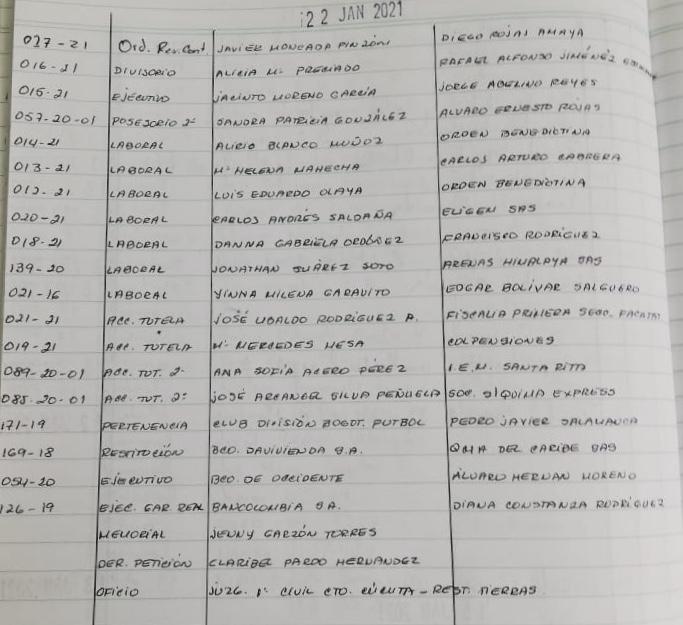 22 JAN 2021
027-21 Ord. Rev. Cont. JAVIER MONCADA PINZÓN DIEGO ROJAS AMAYA
016-21 DIVISORIO ALICIA Mª PRECIADO RAFAEL ALFONSO JIMÉNEZ
015-21 EJECUTIVO JACINTO MORENO GARCÍA JORGE ABELINO REYES
057-20-01 POSESORIO 2ª SANDRA PATRICIA GONZÁLEZ ALVARO ERNESTO ROJAS
014-21 LABORAL ALICIO BLANCO MUÑOZ ORDEN BENEDICTINA
013-21 LABORAL Mª HELENA MAHECHA CARLOS ARTURO CABRERA
012-21 LABORAL LUIS EDUARDO OLAYA ORDEN BENEDICTINA
020-21 LABORAL CARLOS ANDRÉS SALDAÑA ELIGEM SAS
018-21 LABORAL DANNA GABRIELA ORDÓÑEZ FRANCISCO RODRÍGUEZ
139-20 LABORAL JONATHAN SUÁREZ SOTO ARENAS HIMALAYA SAS
021-16 LABORAL YINNA MILENA GARAVITO EDGAR BOLÍVAR SALGUERO
021-21 ACC. TUTELA JOSÉ UBALDO RODRÍGUEZ A. FISCALIA PRIMERA SECC. FACATAT
019-21 ACC. TUTELA Mª MERCEDES MESA COLPENSIONES
089-20-01 ACC. TUT. 2ª ANA SOFÍA ACERO PÉREZ I.E.M. SANTA RITA
085-20-01 ACC. TUT. 2ª JOSÉ ARCANGEL SILVA PEÑUELA SOC. S/QUIMA EXPRESS
171-19 PERTENENCIA CLUB DIVISIÓN BOGOT. FUTBOL PEDRO JAVIER SALAMANCA
169-18 RESTITUCIÓN BCO. DAVIVIENDA S.A. QMA DEL CARIBE SAS
054-20 EJECUTIVO BCO. DE OCCIDENTE ÁLVARO HERNAN MORENO
126-19 EJEC. GAR. REAL BANCOLOMBIA S.A. DIANA CONSTANZA RODRÍGUEZ
MEMORIAL JENNY GARZÓN TORRES
DER. PETICIÓN CLARIBEL PARDO HERNANDEZ
OFICIO JUZG. 1º CIVIL CTO. CÚCUTA - REST. TIERRAS